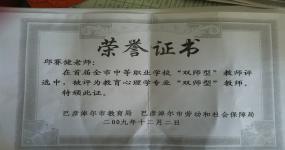 荣誉证书
邱赛健老师：
在首届全市中等职业学校“双师型”教师评
选中，被评为教育心理学专业“双师型”教师，
特颁此证。
巴彦淖尔市教育局 巴彦淖尔市劳动和社会保障局
二00九年十二月二日